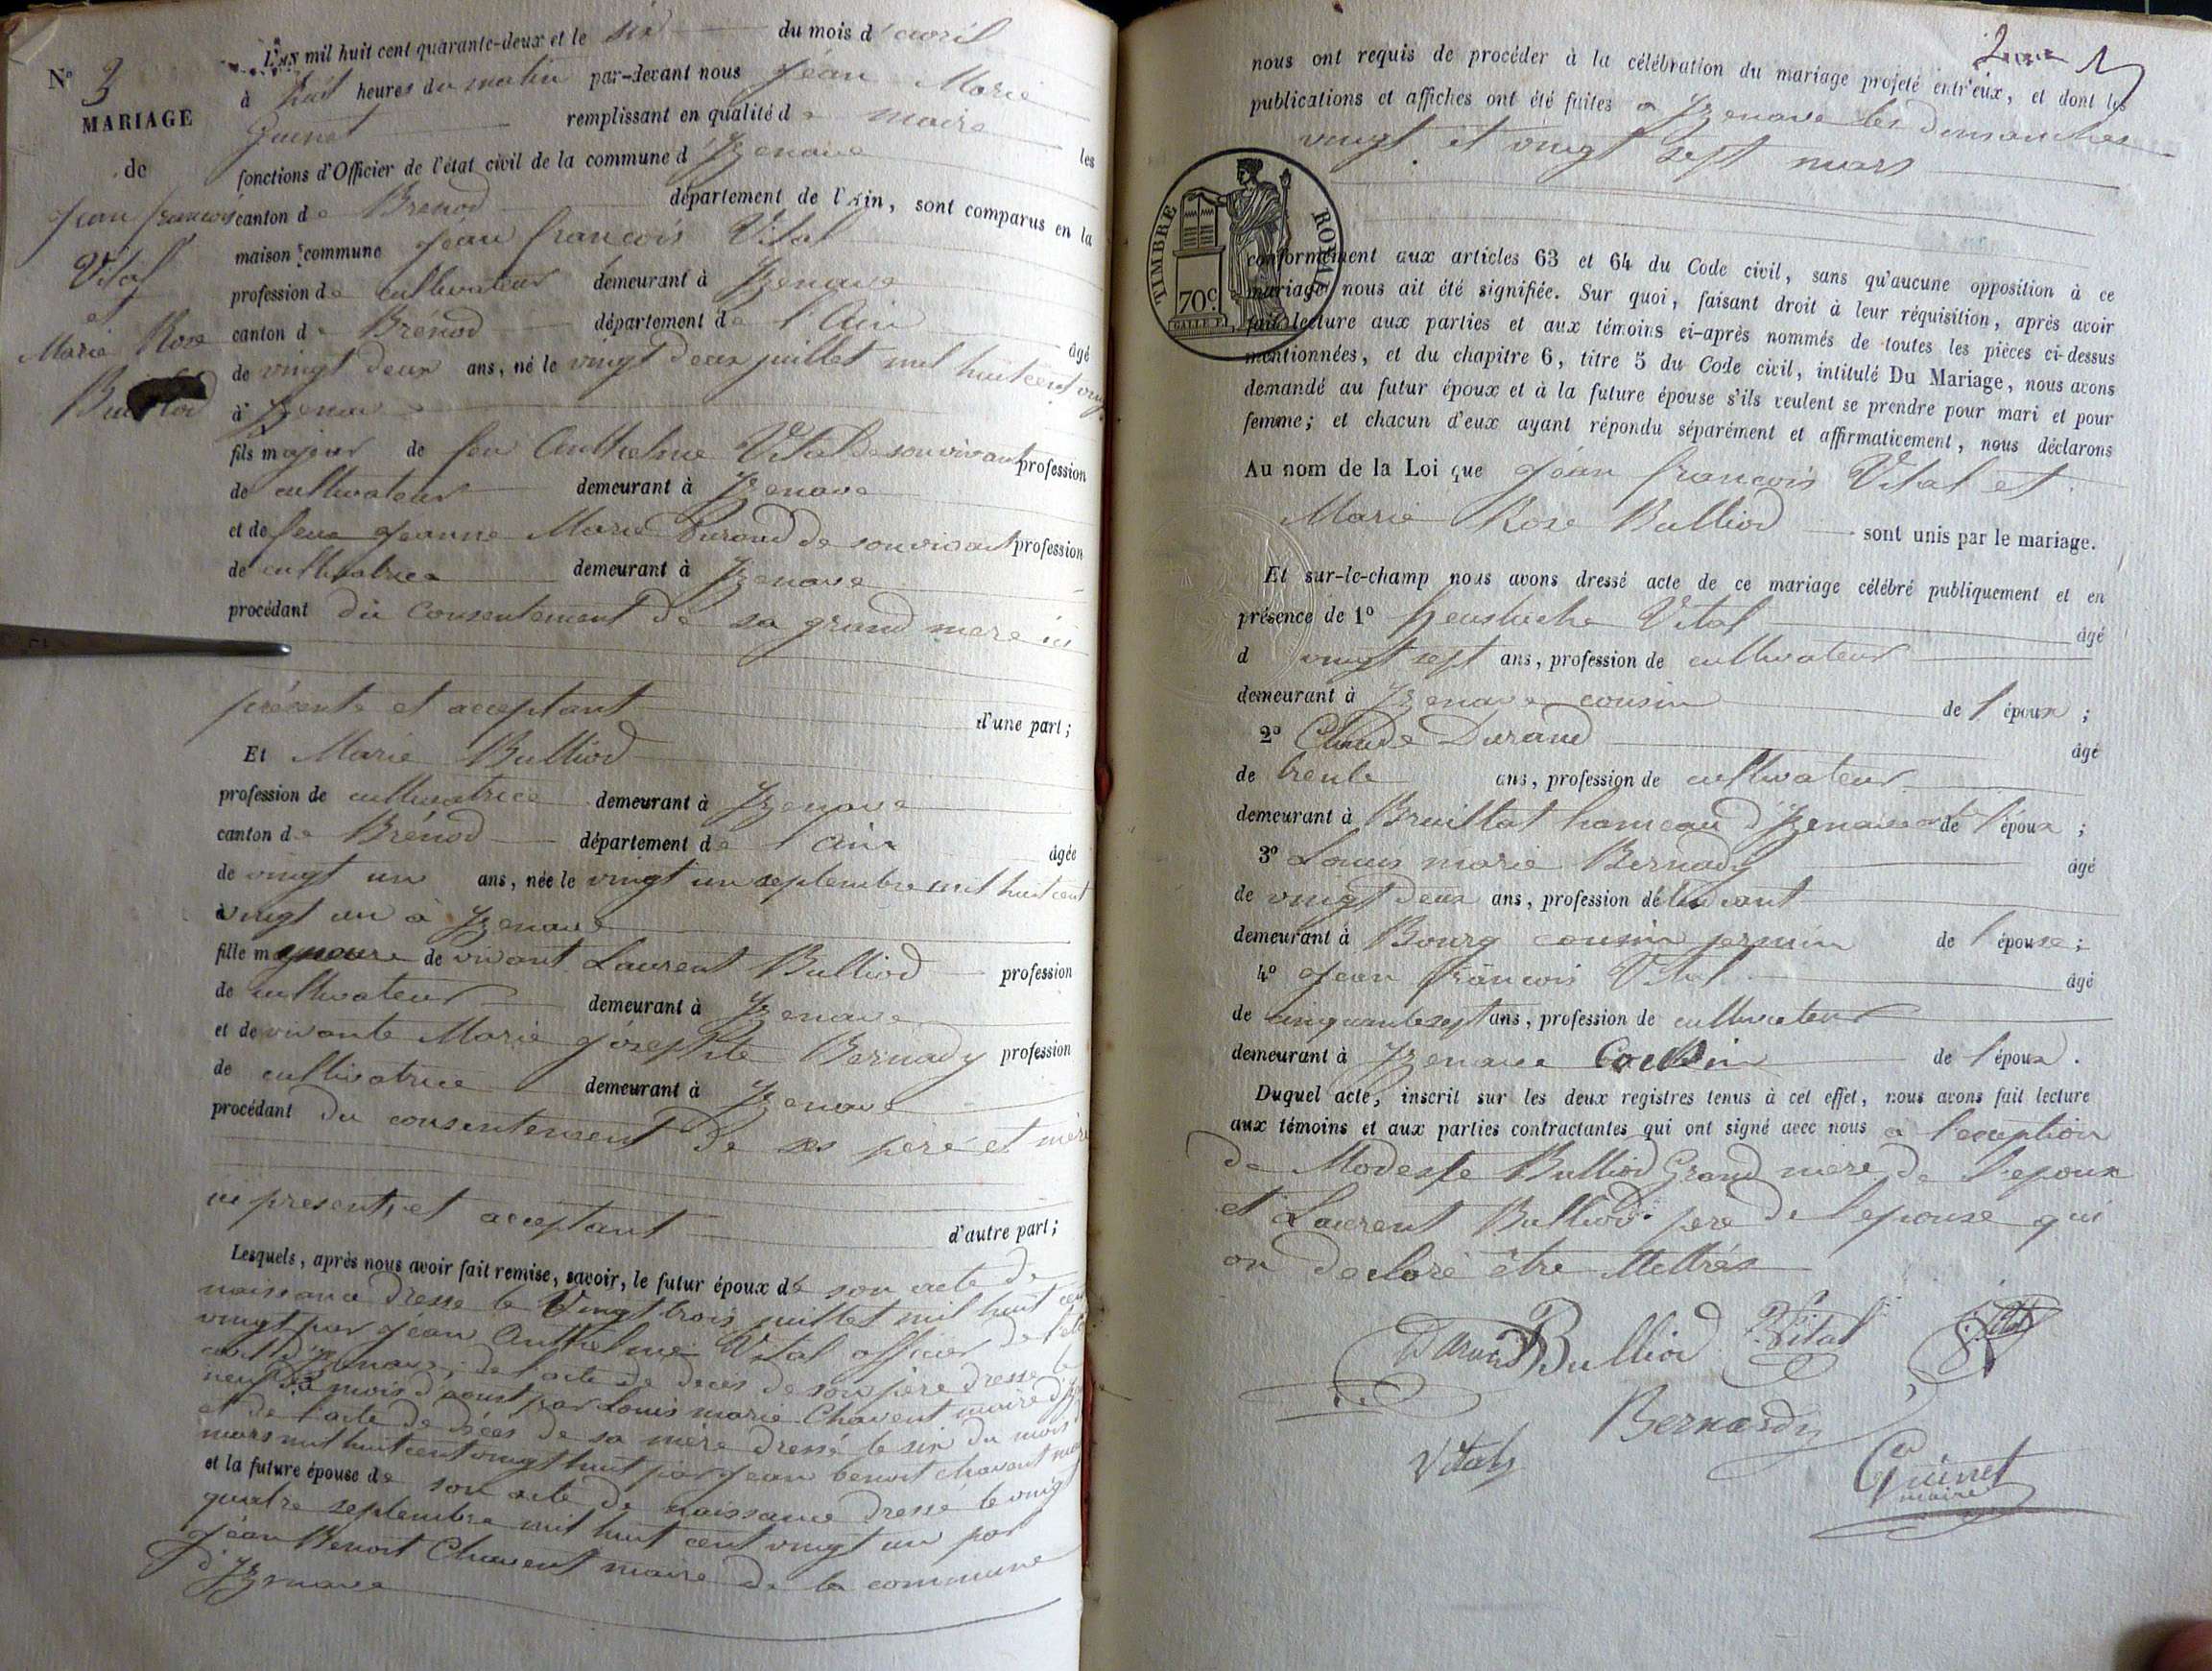 N° 3
MARIAGE
de
Jean françois
Vital
et
Marie Rose
Bulliod
L'AN mil huit cent quarante-deux et le six du mois d'avril
à huit heures du matin par-devant nous Jean Marie
Guinet remplissant en qualité de maire les
fonctions d'Officier de l'état civil de la commune d'Izenave
canton de Brenod département de l'Ain, sont comparus en la
maison commune Jean françois Vital
profession de cultivateur demeurant à Izenave
canton de Brénod département de l'Ain âgé
de vingt deux ans, né le vingt deux juillet mil huit cent vingt
à Izenave
fils majeur de feu Anthelme Vital de son vivant profession
de cultivateur demeurant à Izenave
et de feue Jeanne Marie Durand de son vivant profession
de cultivatrice demeurant à Izenave
procédant du consentement de sa grand mere ici
présente et acceptant d'une part;
Et Marie Bulliod
profession de cultivatrice demeurant à Izenave
canton de Brénod département de l'Ain âgée
de vingt un ans, née le vingt un septembre mil huit cent
vingt un à Izenave
fille majeure de vivant Laurent Bulliod profession
de cultivateur demeurant à Izenave
et de vivante Marie Joséphte Bernady profession
de cultivatrice demeurant à Izenave
procédant du consentement de ses père et mère
ici presents et acceptant d'autre part;
Lesquels, après nous avoir fait remise, savoir, le futur époux de son acte de
naissance dresse le Vingt trois juillet mil huit cent
vingt par Jean Anthelme Vital officier de l'état
civil d'Izenave, de l'acte de deces de son père dresse le
neuf du mois d'aoust par Louis marie Chavent maire
et de l'acte de décès de sa mère dressé le six du mois
mars mil huit cent vingt huit par Jean benoit chavent
et la future épouse de son acte de naissance dressé le vingt
quatre septembre mil huit cent vingt un par
Jean Benoit Chavent maire de la commune
d'Izenave
nous ont requis de procéder à la célébration du mariage projeté entr'eux, et dont les
publications et affiches ont été faites a Izenave les dimanches
vingt et vingt sept mars
TIMBRE ROYAL
70 c.
conformément aux articles 63 et 64 du Code civil, sans qu'aucune opposition à ce
mariage nous ait été signifiée. Sur quoi, faisant droit à leur réquisition, après avoir
fait lecture aux parties et aux témoins ci-après nommés de toutes les pièces ci-dessus
mentionnées, et du chapitre 6, titre 5 du Code civil, intitulé Du Mariage, nous avons
demandé au futur époux et à la future épouse s'ils veulent se prendre pour mari et pour
femme; et chacun d'eux ayant répondu séparément et affirmativement, nous déclarons
Au nom de la Loi que Jean françois Vital et
Marie Rose Bulliod sont unis par le mariage.
Et sur-le-champ nous avons dressé acte de ce mariage célébré publiquement et en
présence de 1° heustache Vital âgé
d vingt sept ans, profession de cultivateur
demeurant à Izenave cousin de l'époux;
2° Claude Durand âgé
de trente ans, profession de cultivateur
demeurant à Breuillat hameau d'Izenave de l'époux;
3° Louis marie Bernady âgé
de vingt deux ans, profession d'étudiant
demeurant à Bourg cousin jermin de l'épouse;
4° Jean françois Vital âgé
de cinquante sept ans, profession de cultivateur
demeurant à Izenave Cousin de l'époux.
Duquel acte, inscrit sur les deux registres tenus à cet effet, nous avons fait lecture
aux témoins et aux parties contractantes qui ont signé avec nous a l'exception
de Modeste Bulliod Grand mere de l'epoux
et Laurent Bulliod père de l'epouse qui
on declaré être illettrés
Durand Bulliod Vital Vital
Bernardy
Vital
Guinet
maire